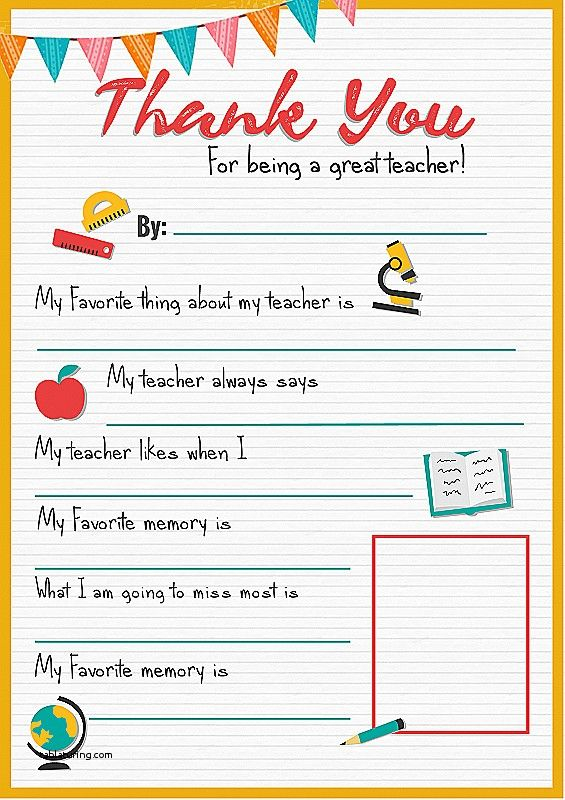 Thank You
For being a great teacher!
By:
My Favorite thing about my teacher is
My teacher always says
My teacher likes when I
My Favorite memory is
What I am going to miss most is
My Favorite memory is